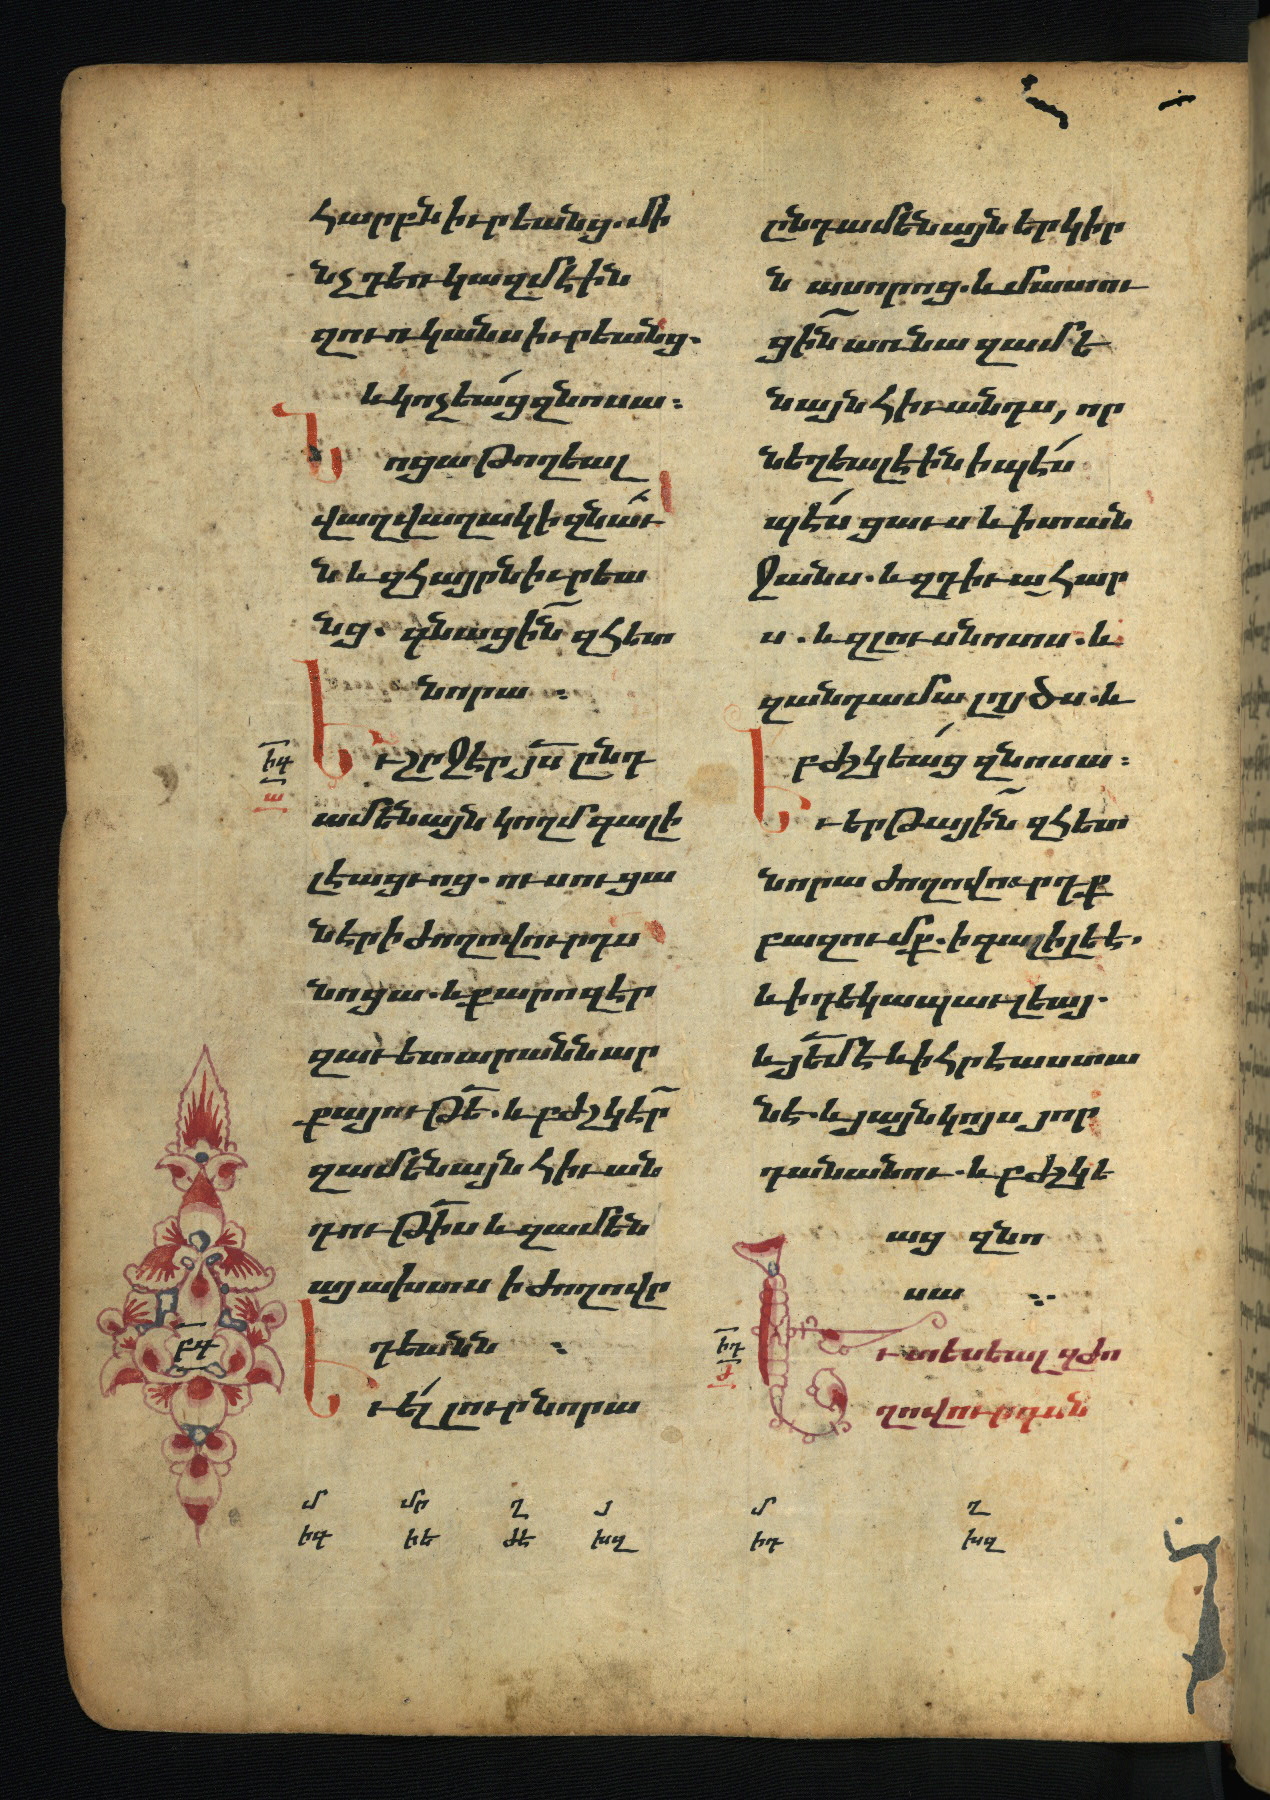 հարբն իւրեանց. մի
նչ դեռ կազմէին
զուռկանս իւրեանց.
և կոչեաց զնոսա:
Նոցա թողեալ
վաղվաղակի զնաւ
ն և զհայրն իւրեա
նց. գնացին զհետ
նորա :
Եւ շրջէր յս ընդ
ամենայն կողմ գալի
լէացւոց. ուսուցա
նէր ի ժողովուրդս
նոցա. և քարոզէր
զաւետարանն ար
քայութե. և բժշկէր
զամենայն հիւան
դութիս և զամեն
այ ախտս ի ժողովր
դեանն :
Եւ ել լուր նորա
ընդ ամենայն երկիր
ն ասորոց. և մատու
ցին առ նա զամե
նայն հիւանդս, որ
նեղեալ էին ի պէս
պէս ցաւս և ի տան
ջանս. և զդիւահար
ս. և զլուսնոտս. և
զանդամալոյծս. և
բժշկեաց զնոսա:
Եւ երթային զհետ
նորա ժողովուրդք
բազումք. ի գալիլեէ,
և ի դեկապաւլեայ.
և յեմէ և ի հրէաստա
նէ. և յայնկոյս յոր
դանանու. և բժշկե
աց զնո
սա :
Եւ տեսեալ զժո
ղովուրդսն
իգ
ա
բգ
իդ
մ մր ղ յ
իգ իե ժե խզ
մ ղ
իդ խզ